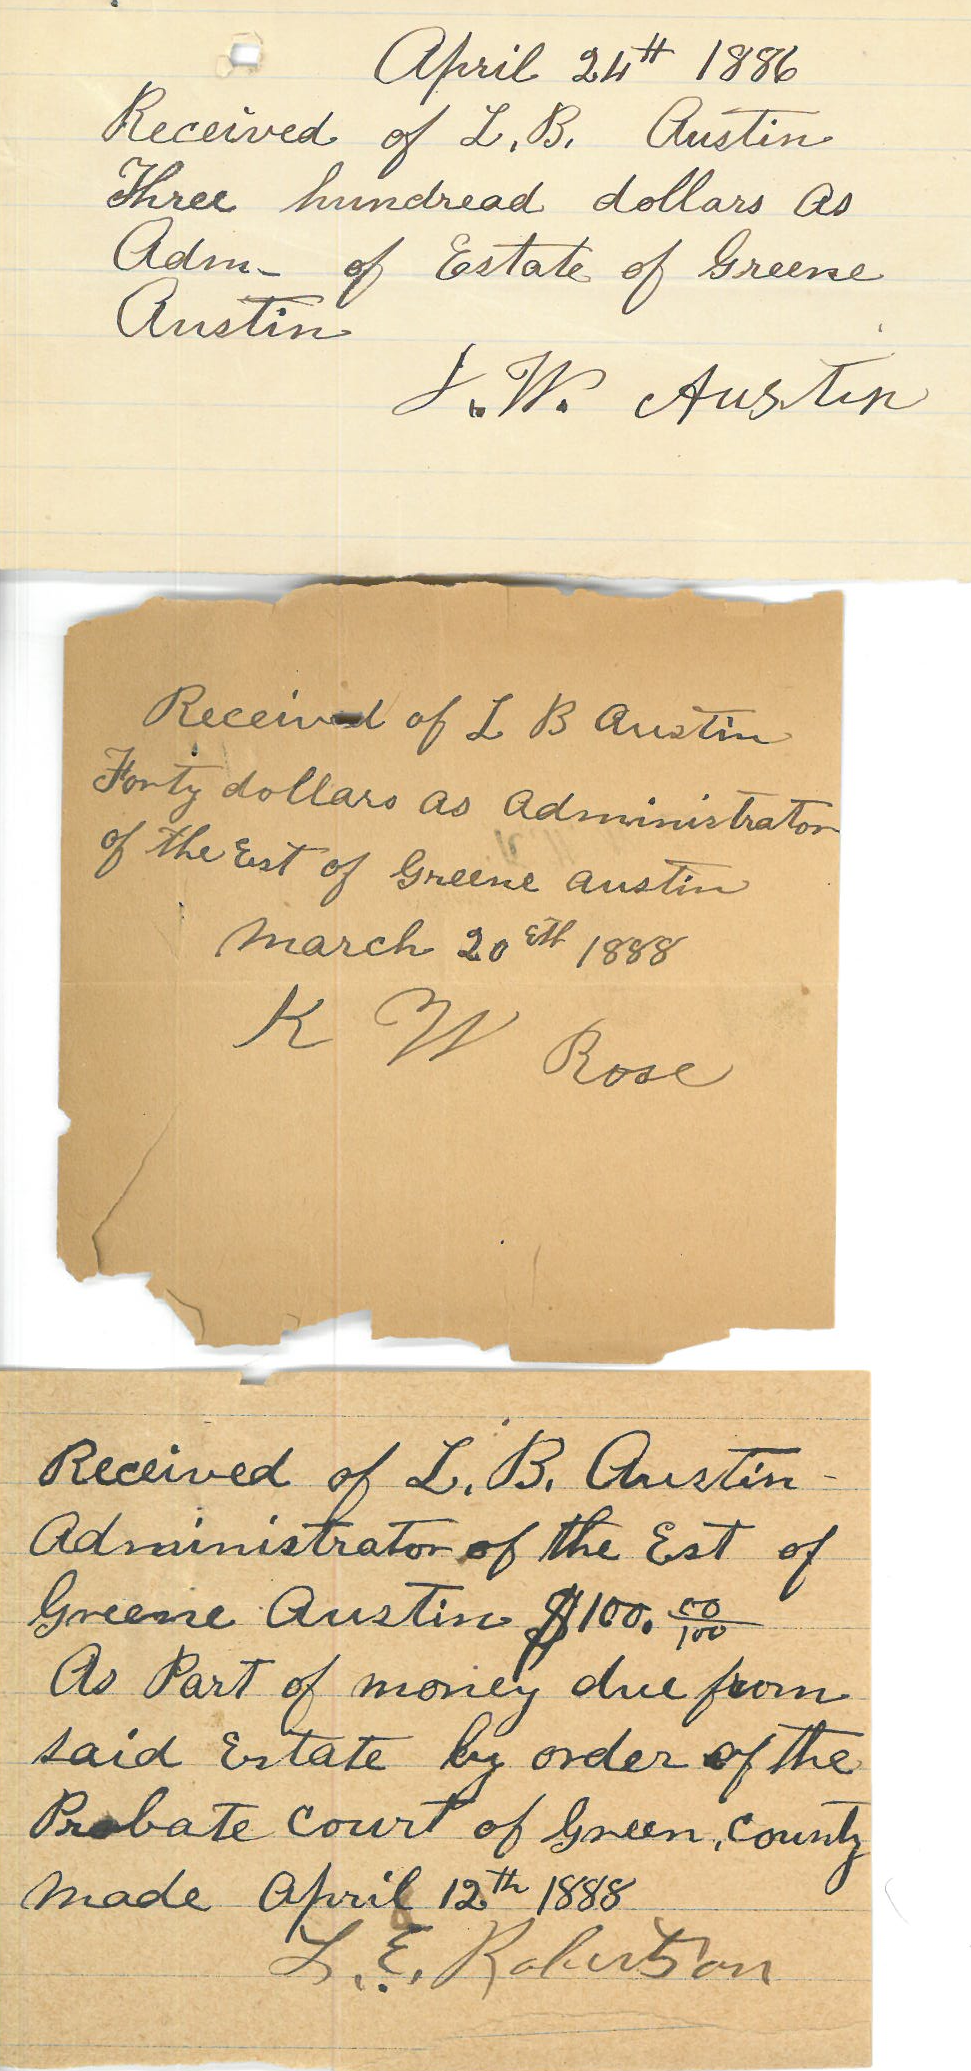 April 24th 1886
Received of L. B. Austin
Three hundread dollars as
Adm- of Estate of Greene
Austin
J. W. Austin
Received of L B Austin
Forty dollars as Administrator
of the Est of Greene Austin
March 20 Eth 1888
K W Rose
Received of L. B. Austin
Administrator of the Est of
Greene Austin $100. 00/100
As Part of money due from
said Estate by order of the
Probate Court of Green, County
Made April 12th 1888
L. E. Robertson